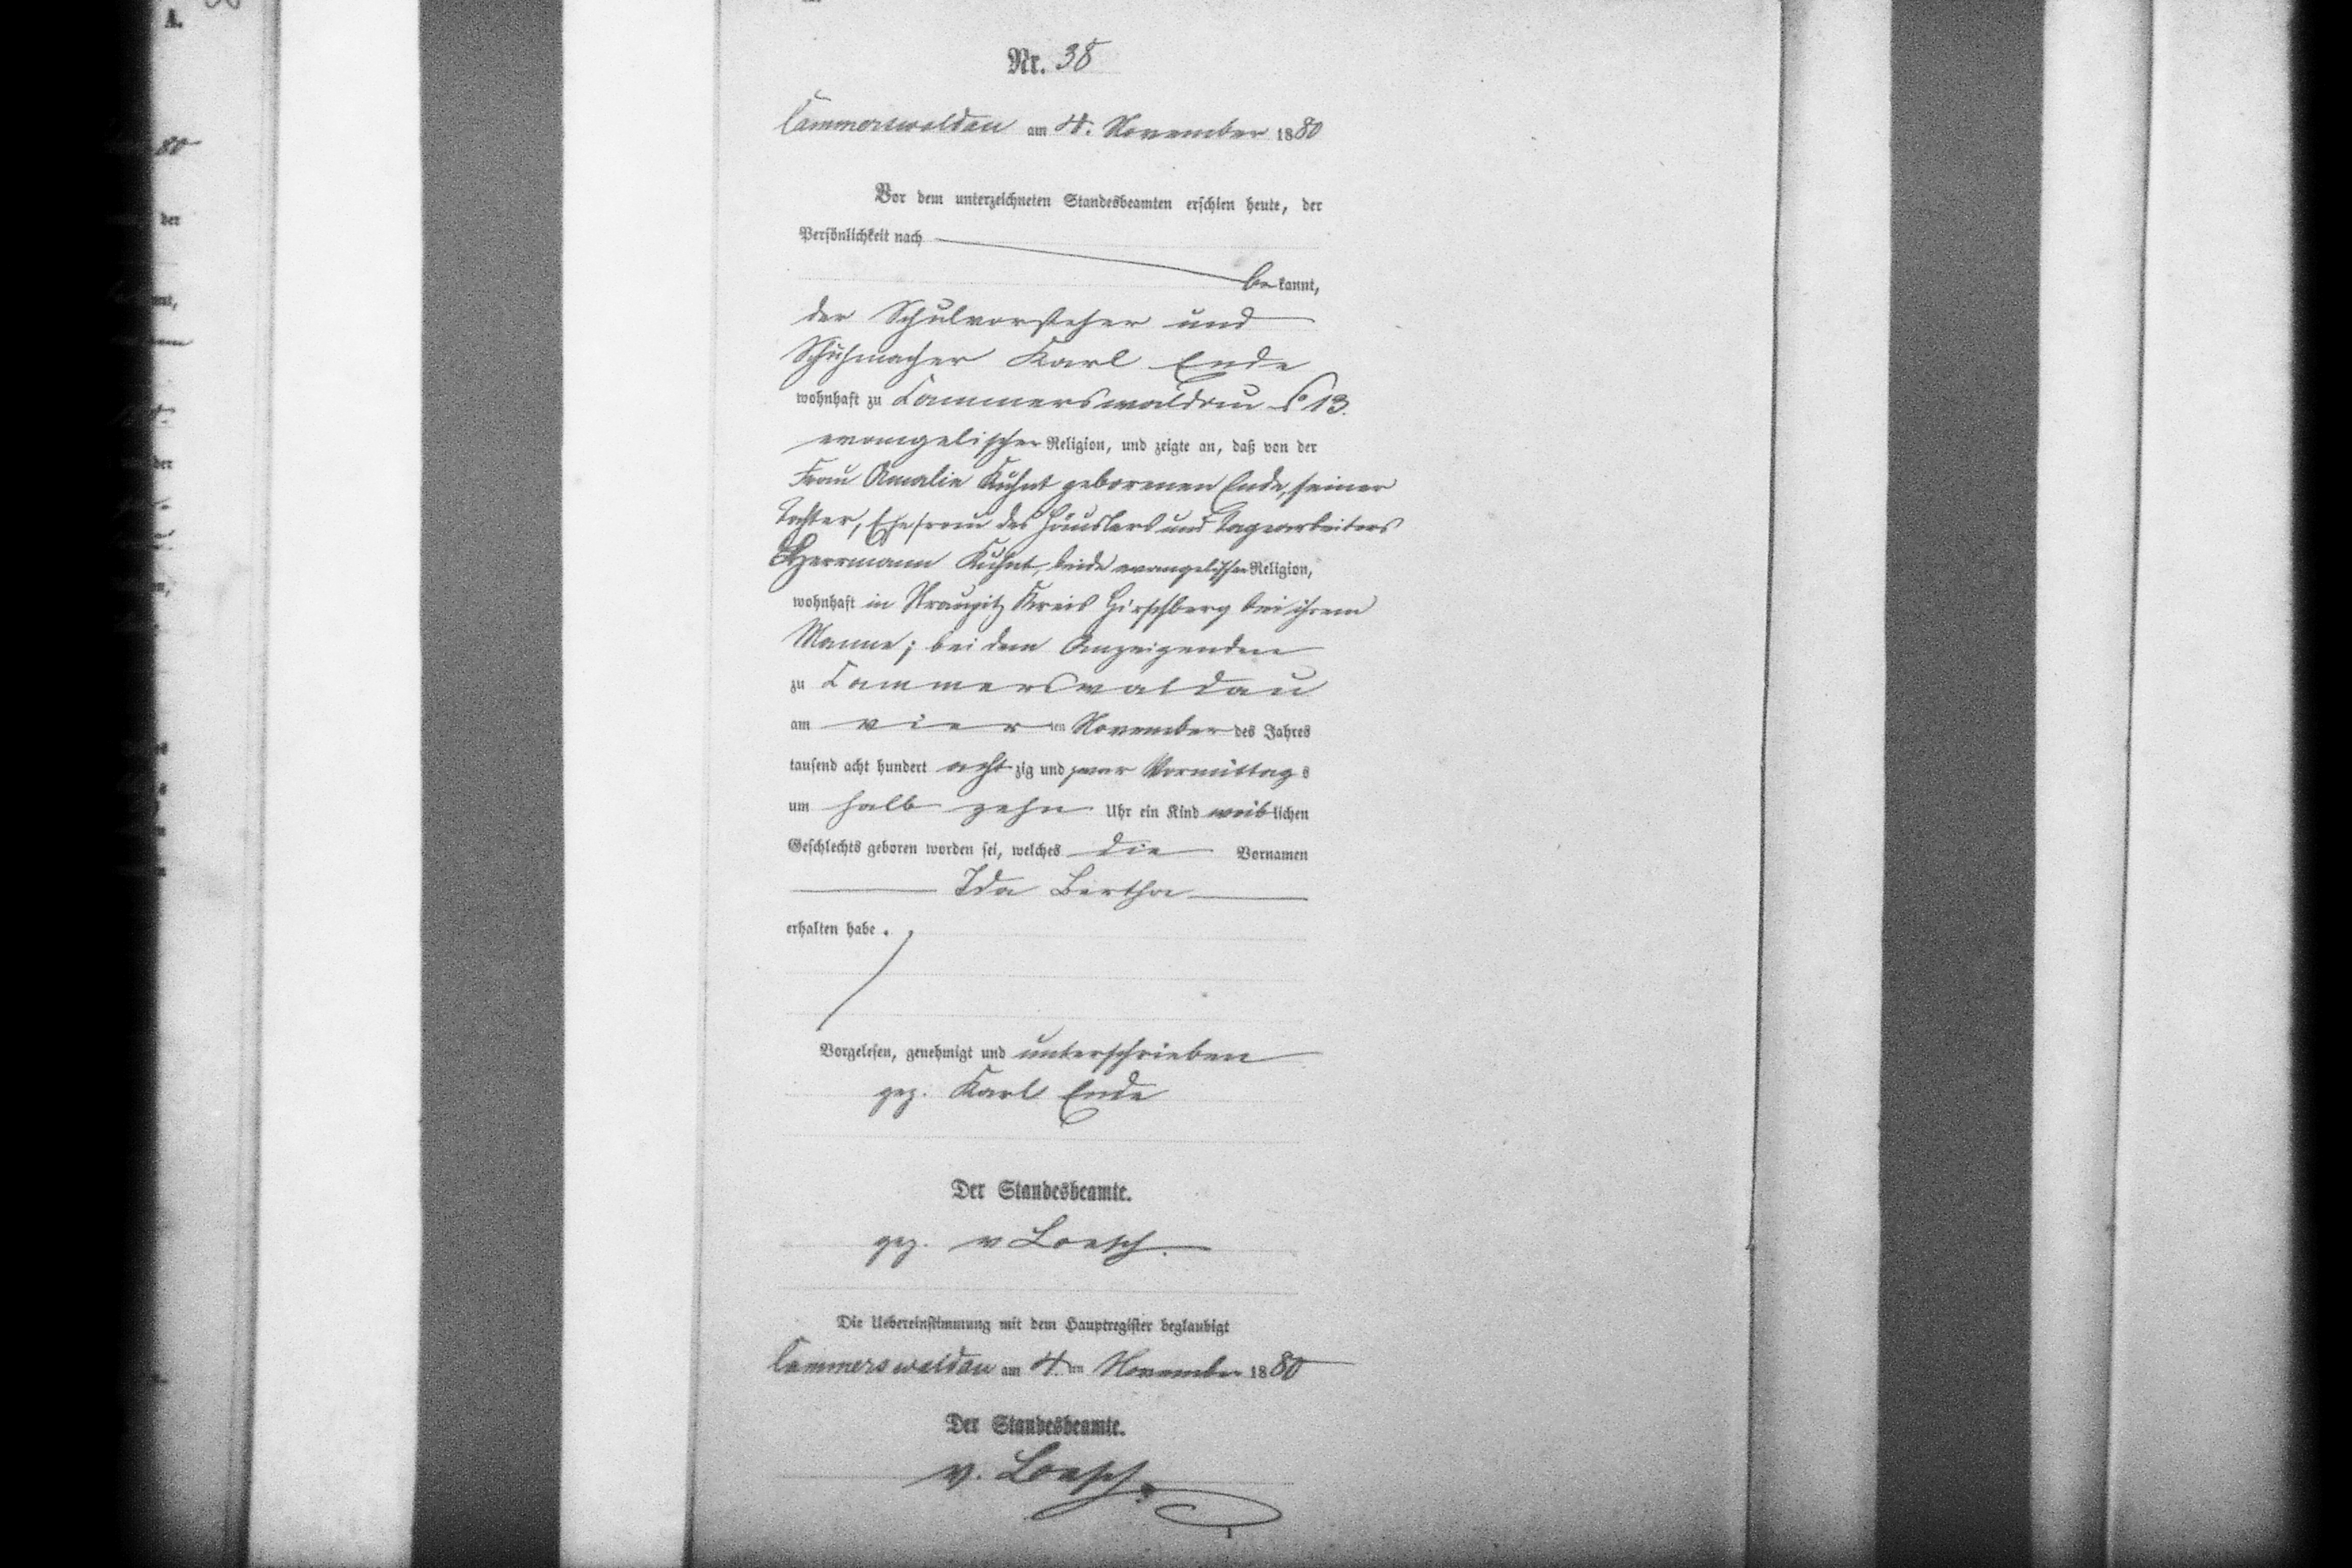 A.
80
der
Nr. 38
Cammerswaldau am 4. November 1880
Vor dem unterzeichneten Standesbeamten erschien heute, der
Persönlichkeit nach
be kannt,
der Schulvorsteher und
Schuhmacher Karl Ende
wohnhaft zu Cammerswaldau No 13.
evangelischer Religion, und zeigte an, daß von der
Frau Amalie Kuhnt geborenen Ende, seiner
Tochter, Ehefrau des Häuslers und Tagearbeiters
Herrmann Kuhnt, beide evangelischer Religion,
wohnhaft in Straupitz Kreis Hirschberg bei ihrem
Manne; bei dem Anzeigenden
zu Cammerswaldau
am vier ten November des Jahres
tausend acht hundert acht zig und zwar Vormittag s
um halb zehn Uhr ein Kind weib lichen
Geschlechts geboren worden sei, welches die Vornamen
Ida Bertha
erhalten habe.
Vorgelesen, genehmigt und unterschrieben
gez. Karl Ende
Der Standesbeamte.
gez. v Loesch.
Die Uebereinstimmung mit dem Hauptregister beglaubigt
Cammerswaldau am 4. ten November 1880
Der Standesbeamte.
v. Loesch.